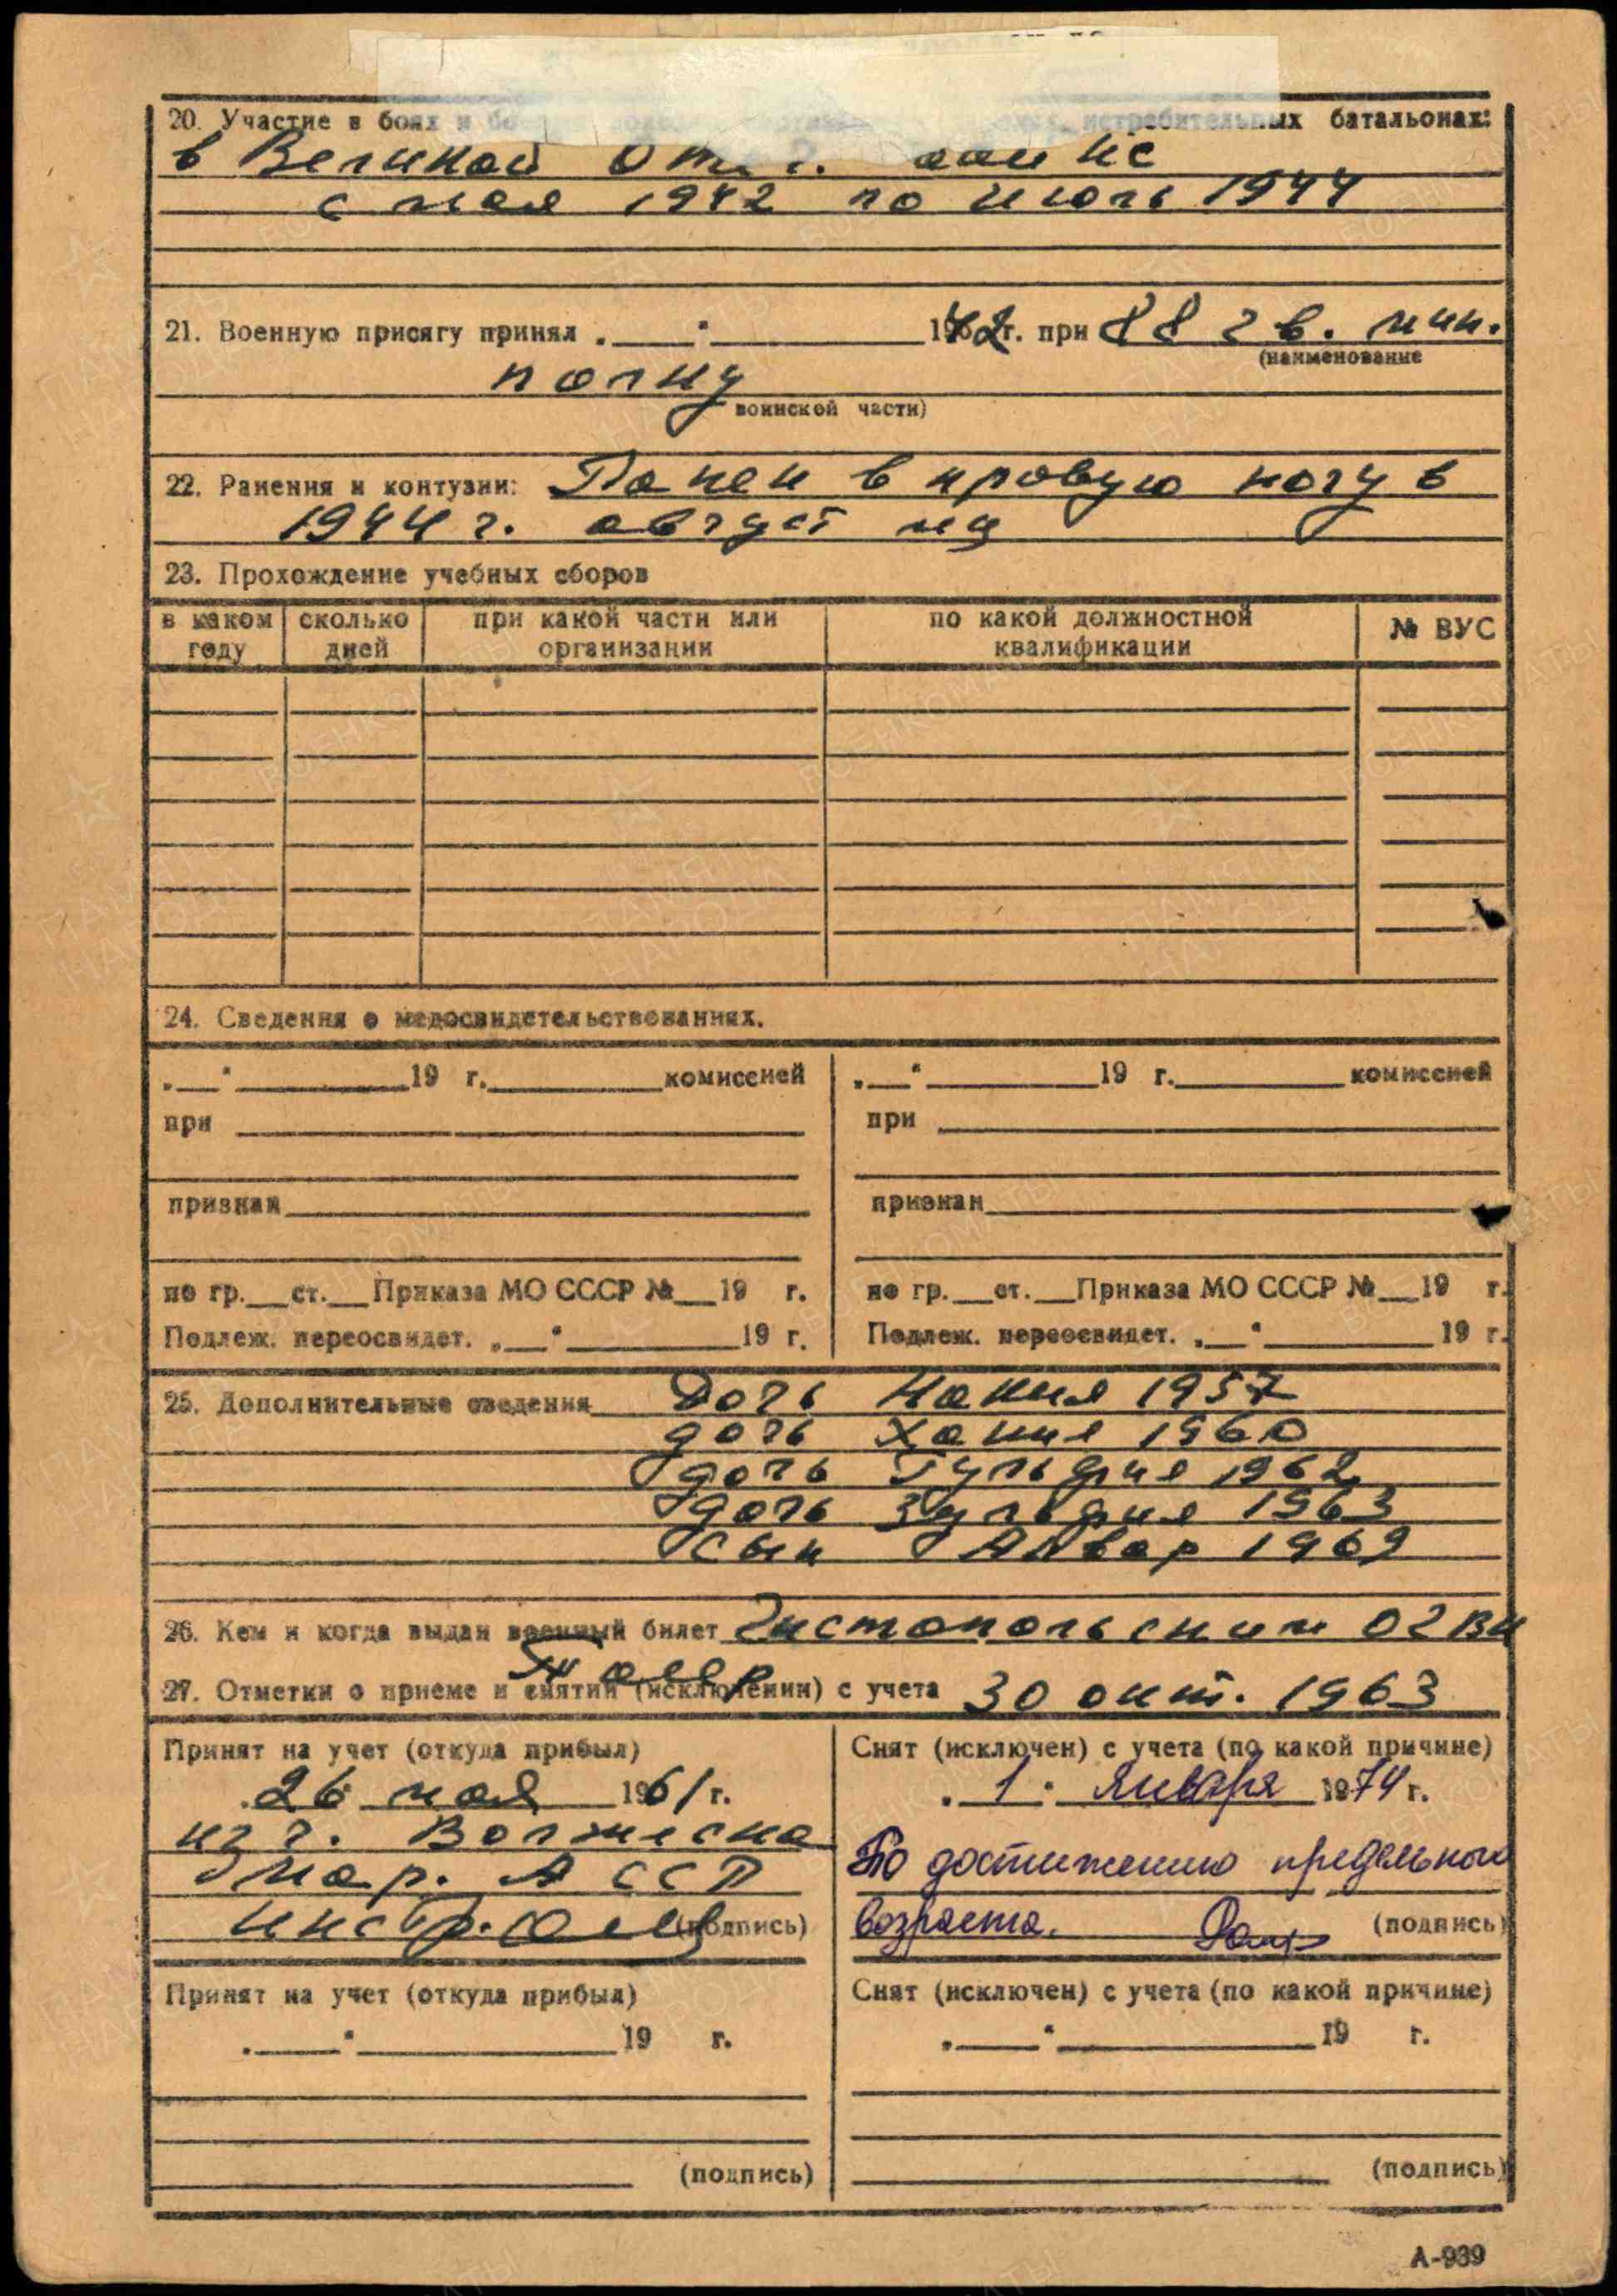 20. Участие в боях и истребительных батальонах:
в Великой Отеч. войне
с мая 1942 по июль 1944
21. Военную присягу принял „ “ 1942 г. при 88 гв. мин.
(наименование
полку
воинской части)
22. Ранения и контузии: Ранен в правую ногу в
1944 г. август м-ц
23. Прохождение учебных сборов
в каком году | сколько дней | при какой части или организации | по какой должностной квалификации | № ВУС
24. Сведения о медосвидетельствованиях.
„ “ 19 г. комиссией
при
признан
по гр. ст. Приказа МО СССР № 19 г.
Подлеж. переосвидет. „ “ 19 г.
„ “ 19 г. комиссией
при
признан
по гр. ст. Приказа МО СССР № 19 г.
Подлеж. переосвидет. „ “ 19 г.
25. Дополнительные сведения Дочь Накия 1957
дочь Хания 1960
дочь Гульфия 1962
дочь Зульфия 1963
Сын Анвар 1969
26. Кем и когда выдан военный билет Чистопольским ОГВК
27. Отметки о приеме и снятии (исключении) с учета 30 окт. 1963
Принят на учет (откуда прибыл)
„26 мая 1961 г.
из г. Волжска
Мар. АССР
инстр. (подпись)
Снят (исключен) с учета (по какой причине)
„1“ января 1974 г.
По достижению предельного
возраста. (подпись)
Принят на учет (откуда прибыл)
„ “ 19 г.
(подпись)
Снят (исключен) с учета (по какой причине)
„ “ 19 г.
(подпись)
А-939